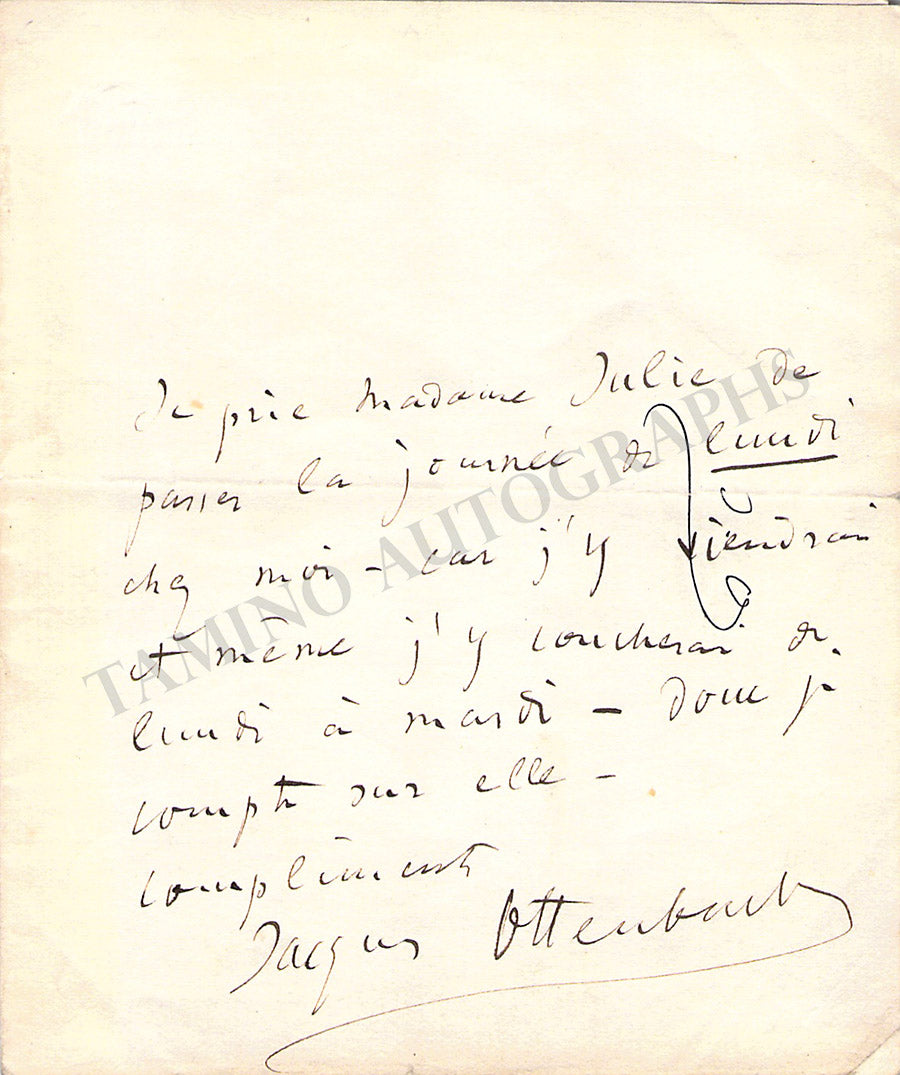 Je prie Madame Julie de
passer la journée de lundi
chez moi - car j'y viendrai
et même j'y coucherai de
lundi à mardi - donc je
compte sur elle -
compliments
Jacques Offenbach
TAMINO AUTOGRAPHS